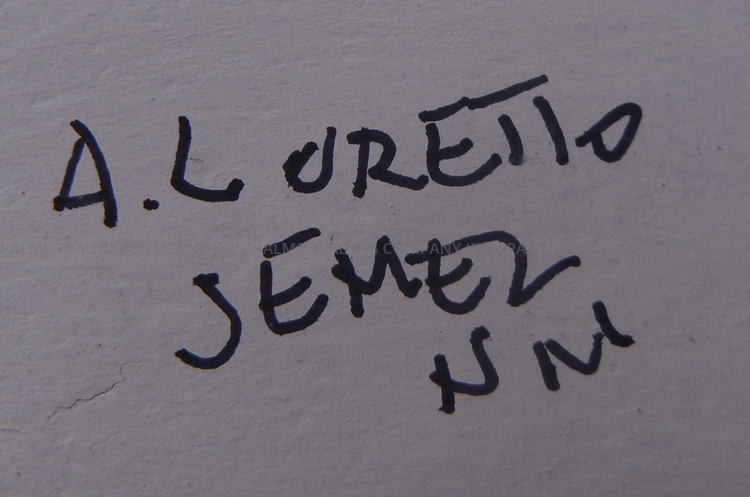 A. LORETTO
JEMEZ
NM